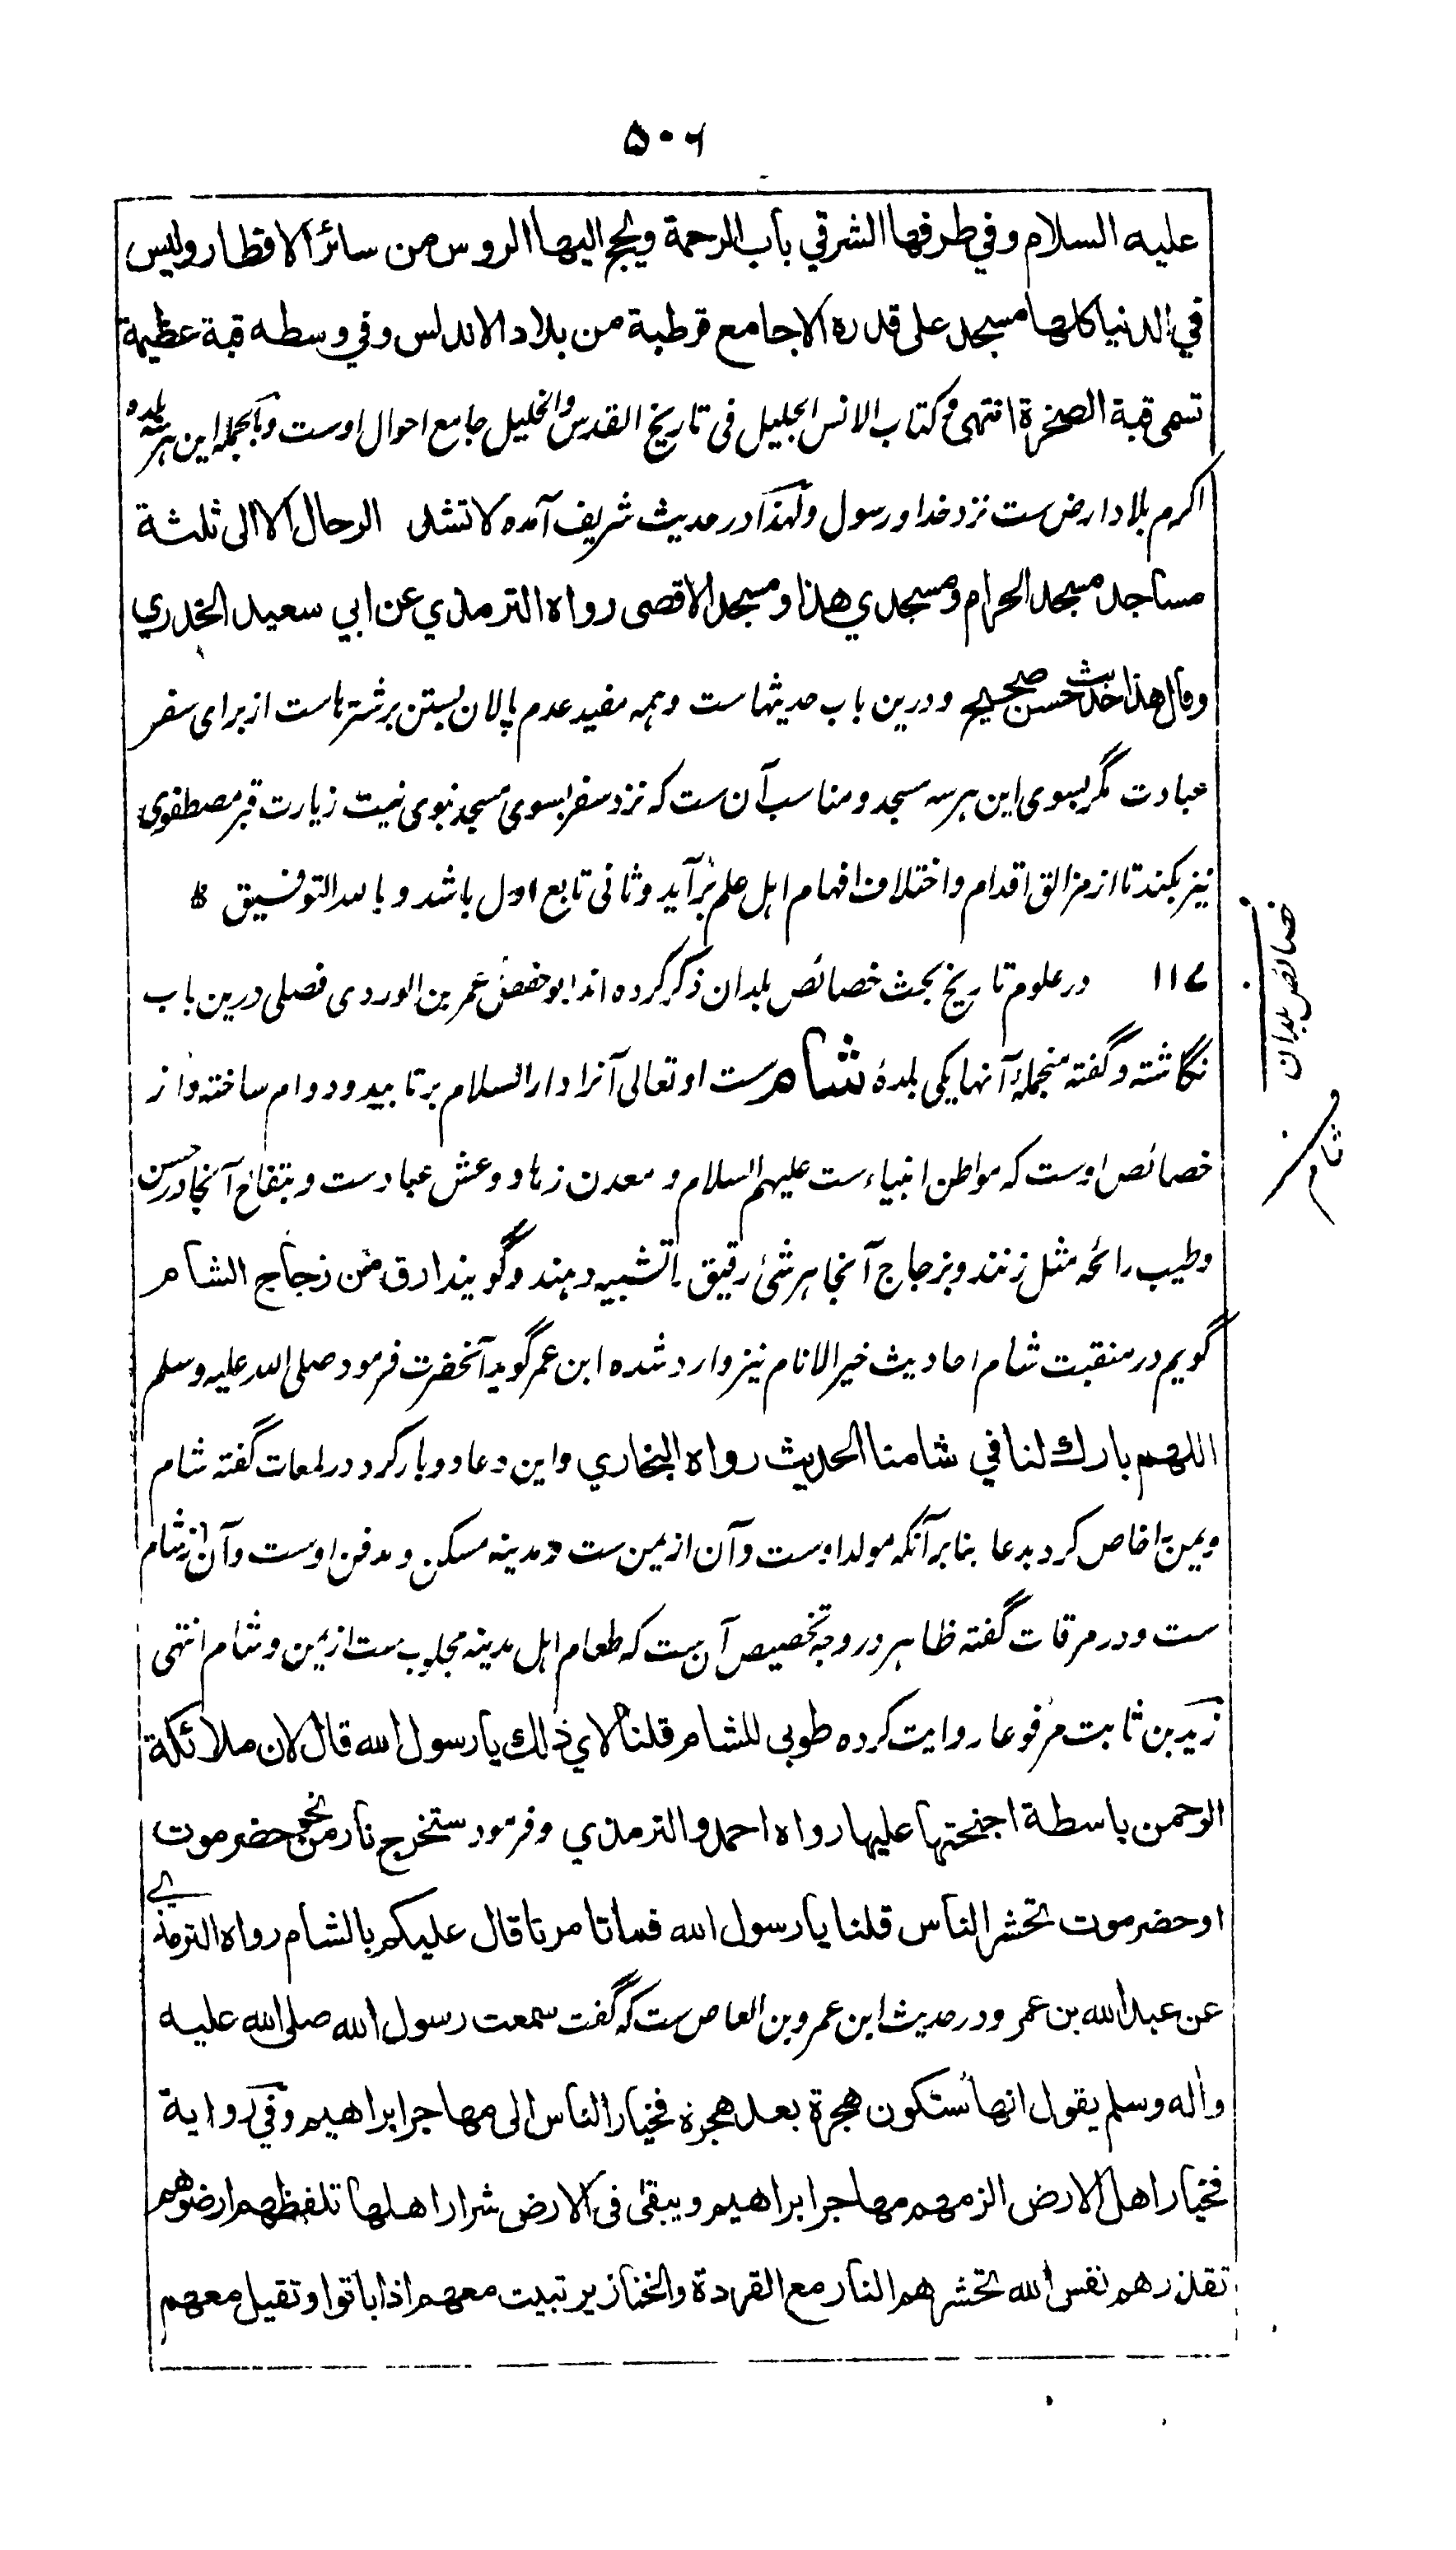 ۵۰۶
عليه السلام وفي طرفها الشرقي باب الرحمة ويحج اليها الروس من سائر الاقطار وليس
في الدنيا كلها مسجد على قدره الا جامع قرطبة من بلاد الاندلس وفي وسطه قبة عظيمة
تسمى قبة الصخرة انتهى و کتاب الانس الجلیل فی تاریخ القدس والخلیل جامع احوال اوست وبالجمله این هر سه بلده
اکرم بلاد ارض ست نزد خدا و رسول ولهذا در حدیث شریف آمده لا تشد الرحال الا الى ثلثة
مساجد مسجد الحرام ومسجدي هذا ومسجد الاقصى رواه الترمذي عن ابي سعيد الخدري
وقال هذا حديث حسن صحيح ودرین باب حدیثها ست وهمه مفید عدم پالان بستن بر شترهاست از برای سفر
عبادت مگر بسوی این هر سه مسجد ومناسب آن ست که نزد سفر بسوی مسجد نبوی نیت زیارت قبر مصطفوی
نیز بکند تا از مزالق اقدام واختلاف افهام اهل علم برآید وثانی تابع اول باشد وبالله التوفیق
۱۱۷ در علوم تاریخ بحث خصائص بلدان ذکر کرده اند ابو حفص عمر بن الوردی فصلی درین باب
نگاشته وگفته منجمله آنها یکی بلدهٔ شام ست او تعالی آنرا دار السلام بر تابید ودوام ساخته واز
خصائص اوست که مواطن انبیاء ست علیهم السلام و معدن زهاد وعش عباد ست وبتفاح آنجا در حسن
وطیب رائحه مثل زنند وبزجاج آنجا هر شئ رقیق را تشبیه دهند وگویند ارق من زجاج الشام
گویم در منقبت شام احادیث خیر الانام نیز وارد شده ابن عمر گوید آنحضرت فرمود صلی الله علیه وسلم
اللهم بارك لنا في شامنا الحديث رواه البخاري واین دعا دو بار کرد در لمعات گفته شام
ویمن را خاص کرد بدعا بنا بر آنکه مولد اوست وآن از یمن ست ومدینه مسکن ومدفن اوست وآن از شام
ست ودر مرقات گفته ظاهر در وجه تخصیص آن ست که طعام اهل مدینه مجلوب ست از یمن وشام انتهی
زید بن ثابت مرفوعا روایت کرده طوبى للشام قلنا لاي ذلك يا رسول الله قال لان ملائكة
الرحمن باسطة اجنحتها عليها رواه احمد والترمذي وفرمود ستخرج نار من نحو حضرموت
او حضرموت تحشر الناس قلنا يا رسول الله فما تامرنا قال عليكم بالشام رواه الترمذي
عن عبد الله بن عمر ودر حدیث ابن عمرو بن العاص ست که گفت سمعت رسول الله صلى الله عليه
وآله وسلم يقول انها ستكون هجرة بعد هجرة فخيار الناس الى مهاجر ابراهيم وفي رواية
فخيار اهل الارض الزمهم مهاجر ابراهيم ويبقى فى الارض شرار اهلها تلفظهم ارضوهم
تقذرهم نفس الله تحشرهم النار مع القردة والخنازير تبيت معهم اذا باتوا وتقيل معهم
خصائص بلدان
شام